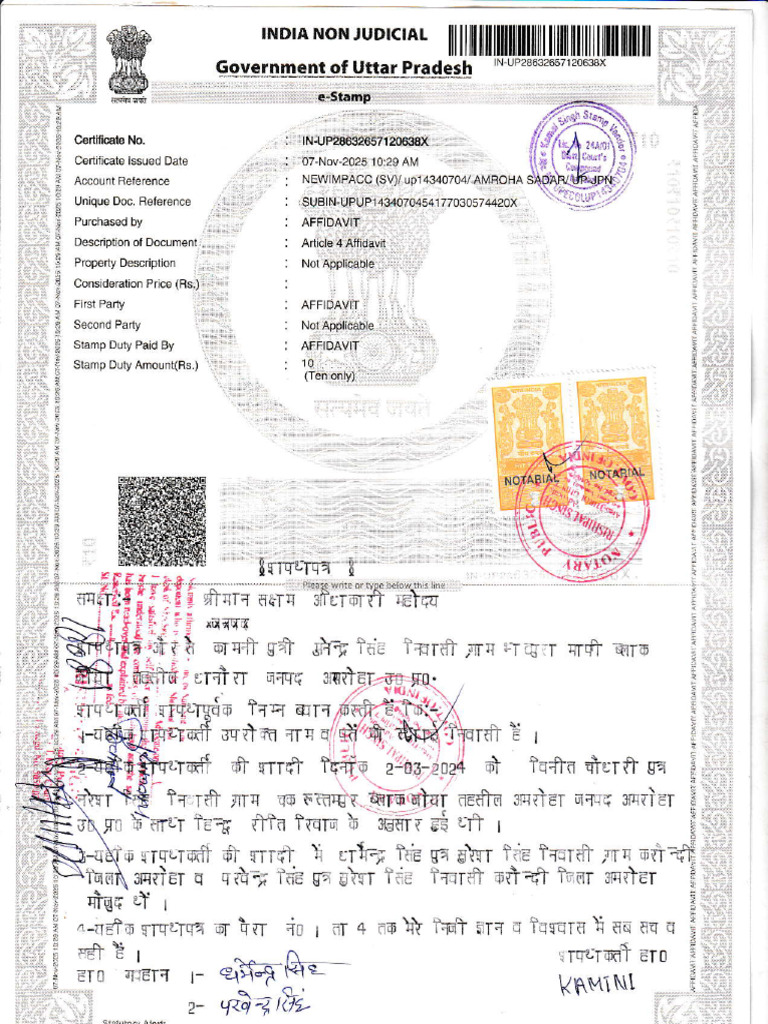 INDIA NON JUDICIAL
IN-UP28632657120638X
Government of Uttar Pradesh
सत्यमेव जयते
e-Stamp
Certificate No. : IN-UP28632657120638X
Certificate Issued Date : 07-Nov-2025 10:29 AM
Account Reference : NEWIMPACC (SV)/ up14340704/ AMROHA SADAR/ UP-JPN
Unique Doc. Reference : SUBIN-UPUP1434070454177030574420X
Purchased by : AFFIDAVIT
Description of Document : Article 4 Affidavit
Property Description : Not Applicable
Consideration Price (Rs.) :
First Party : AFFIDAVIT
Second Party : Not Applicable
Stamp Duty Paid By : AFFIDAVIT
Stamp Duty Amount(Rs.) : 10
(Ten only)
सत्यमेव जयते
Kamal Singh Stamp Vendor
NOTARIAL NOTARIAL
RISHIPAL SINGH
NOTARY PUBLIC
GOVT. OF INDIA
शपथपत्र
Please write or type below this line
समक्षः- श्रीमान सक्षम अधिकारी महोदय
शपथपत्र और से कामनी पुत्री मुनेन्द्र सिंह निवासी ग्राम माफी ब्लाक
तहसील धनौरा जनपद अमरोहा उ0 प्र0.
शपथकर्ती शपथपूर्वक निम्न ब्यान करती हैं कि:-
1-यहकि शपथकर्ती उपरोक्त नाम व पते की निवासी हैं ।
2-यहकि शपथकर्ती की शादी दिनांक 2-03-2024 को विनीत चौधारी पुत्र
नरेश सिंह निवासी ग्राम चक रूस्तमपुर ब्लाक जोया तहसील अमरोहा जनपद अमरोहा
उ0 प्र0 के साथ हिन्दू रीति रिवाज के अनुसार हुई थी ।
3-यहकि शपथकर्ती की शादी में धर्मेन्द्र सिंह पुत्र सुरेश सिंह निवासी ग्राम करौन्दी
जिला अमरोहा व परवेन्द्र सिंह पुत्र सुरेश सिंह निवासी करौन्दी जिला अमरोहा
मौजूद थे ।
4-यहकि शपथपत्र का पैरा नं0 1 ता 4 तक मेरे निजी ज्ञान व विश्वास में सब सच व
सही हैं ।
शपथकर्ती ह0
ह0 गवहान 1- धर्मेन्द्र सिंह
KAMINI
2- परवेन्द्र सिंह
Statutory Alert: